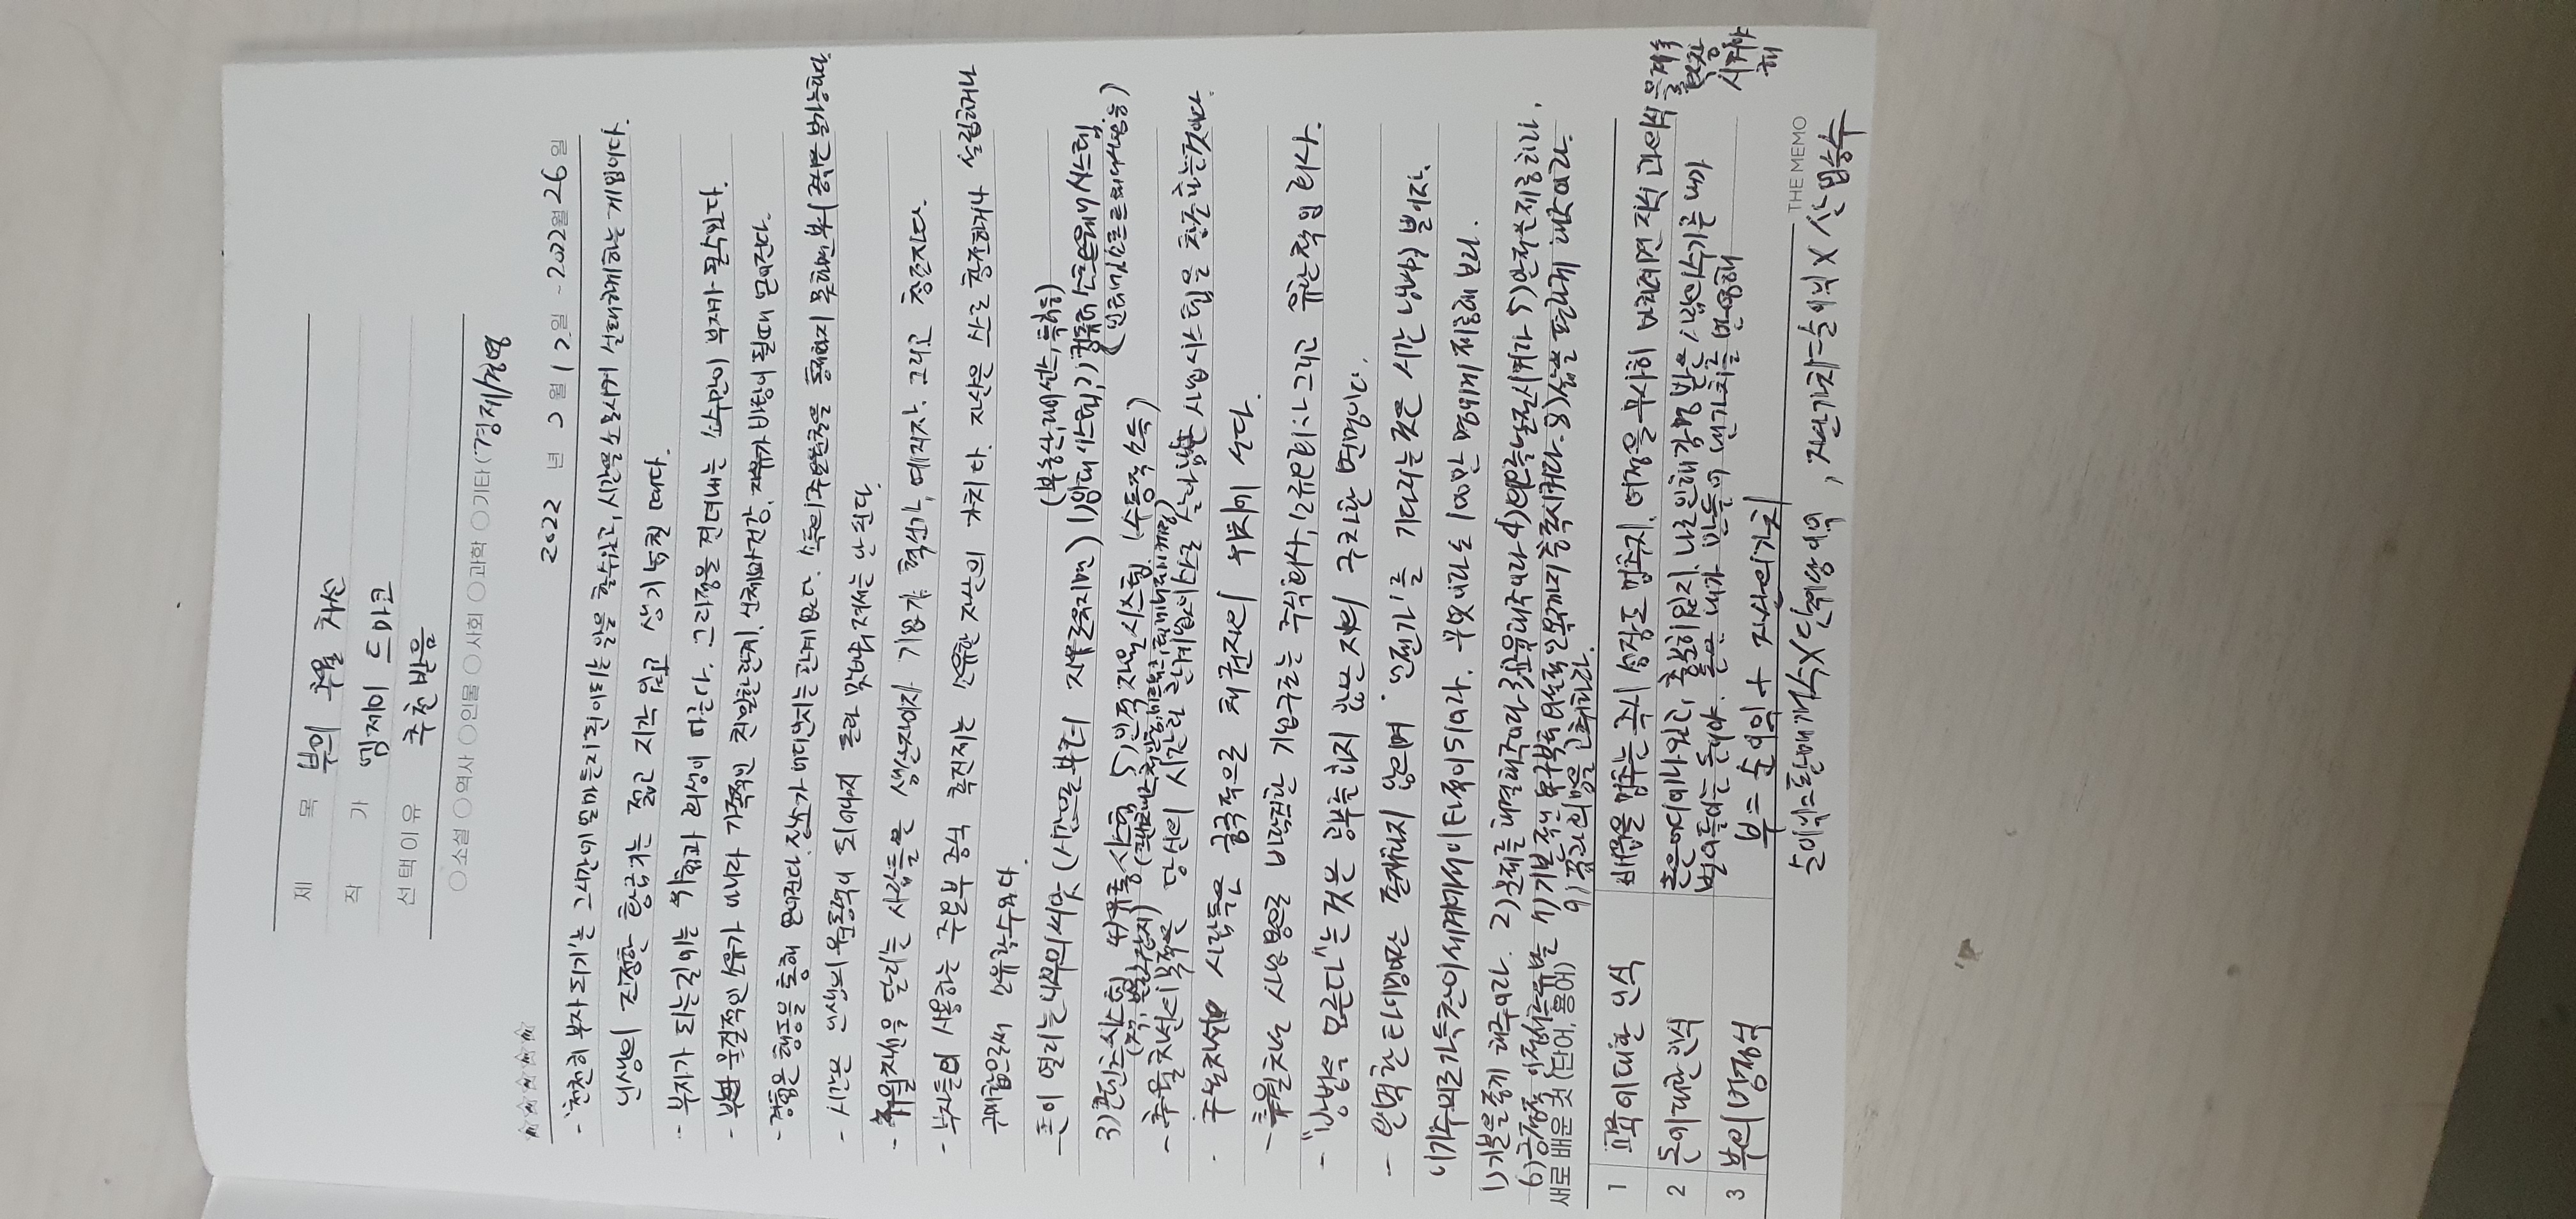 제 목 부의 추월 차선
작 가 엠제이 드마코
선택이유 추천받음
소설 역사 인물 사회 과학 기타( 경제/경영
2022 년 2월 12일 ~2022월 26일
- '천천히 부자 되기'는 그 시간에 얼마든지 일을 할 수 있고, 시간을 소모시켜 하게 하는 게임이다.
인생의 진정한 황금기는 젊고 지각 있고 생기 넘칠 때다.
- 부자가 되는 길에는 위험과 희생이 따른다. 그 과정을 견뎌내는 소수만이 부자가 될 수 있다.
- 부란 물질적인 소유가 아니라 가족적인 친밀한 관계, 신체와 건강, 자유가 바탕이 될 때 얻어진다.
- 경험은 행동을 통해 얻어진다. 장소가 어디인지는 관계 없다. 소득의 주요 원천을 통제하지 못하면 부의 증식은 불가능하다.
- 시간은 인생의 원동력이 되어야지 돈과 맞바꿔져서는 안 된다.
- 추월차선을 달리는 사람들은 생산자이자 기업가, 혁신가, 예지자. 그리고 창조자다.
- 부자들이 사용하는 주요 부 증식 촉진제는 소유한 자산의 가치다. 자산은 스스로 창조하거나 설립하거나
구매함으로써 소유할 수 있다.
(부동산, 라이선스, 특허 등)
돈이 열리는 나무의 씨앗 (시간으로부터 자유로워지면) 1)임대 시스템, 2)컴퓨터 소프트웨어 시스템,
(인터넷, 소프트웨어, 앱 등)
3)콘텐츠 시스템, 4)유통 시스템 5)인적 자원 시스템. (수동적 소득)
(책, 블로그, 잡지) (프랜차이즈, 체인점, 네트워크 마케팅)
- 추월차선의 목적은 당신의 시간과 관계없이 스스로 살아남는 사업 시스템을 창조하는 것이다.
- 추월차선의 사람들은 궁극적으로 채권자의 위치에 선다.
- 추월차선 사업용으로 바람직한 기업구조는 주식회사, 소규모 회사 그리고 유한책임 회사.
- "방법을 모른다"는 것은 공부를 하지 않은 자의 구차한 변명이다.
- 완벽한 타이밍이란 존재하지 않으며 '언젠가'를 기다리는 것은 시간 낭비일 뿐이자.
이기주의로 가득 찬 이 세계에서 이타적이 되어라. 무엇이라도 100만 명에게 제공해 보라.
1)기분을 좋게 해주어라. 2)문제를 해결해주어라 3)교육해주어라 4)외모를 발전시켜라 5)안전을 제공하라,
6)긍정적인 정서를 유발 7)기본적인 욕구부터 외설적인 욕구까지 충족시켜라. 8)삶을 편리하게 해주어라.
9)꿈과 희망을 고취하라.
새로 배운 것 (단어, 용어)
1 교육에 대한 인식 배움을 멈추는 즉시 성장도 멈추지. 여정을 무사히 마치려면 지식과 의식을 계속 확장시켜야 해
2 돈에 대한 인식 돈은 어디에나 있고, 충분히 있지. 나로 인해 감명 받은 사람의 수가 곧 내가
벌어들이는 돈이야. 돈은 내가 만들어 낸 가치를 반영해
3 부의 방정식 부 = 순이익 + 자산의 가치
THE MEMO
순이익=판매개수X단위당 이익, 자산가치=순이익 X 산업승수